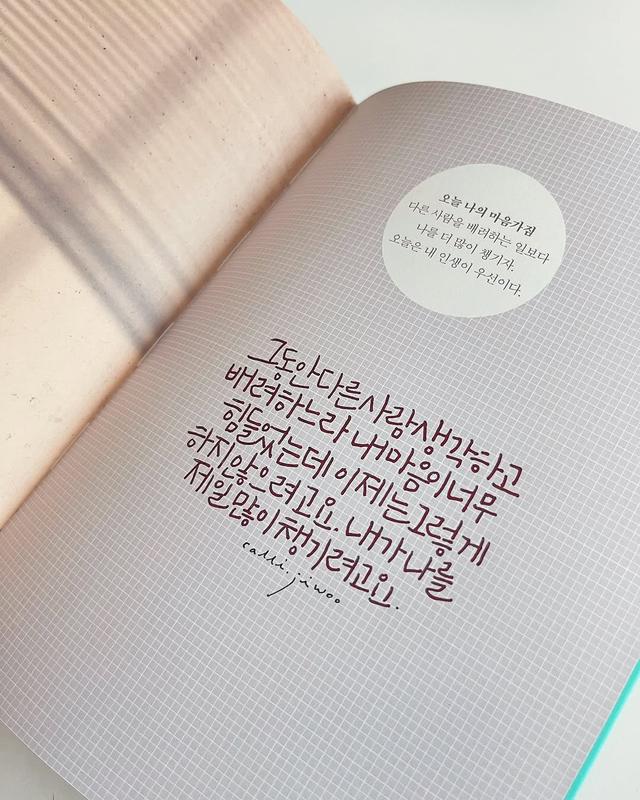 오늘 나의 마음가짐
다른 사람을 배려하는 일보다
나를 더 많이 챙기자.
오늘은 내 인생이 우선이다.
그동안 다른 사람 생각하고
배려하느라 내 마음이 너무
힘들었는데 이제는 그렇게
하지 않으려고요. 내가 나를
제일 많이 챙기려고요.
calli.jiwoo